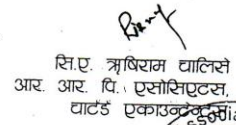 सि.ए. ऋषिराम चालिसे
आर. आर. पि. एसोसिएटस,
चार्टर्ड एकाउन्टेन्टस